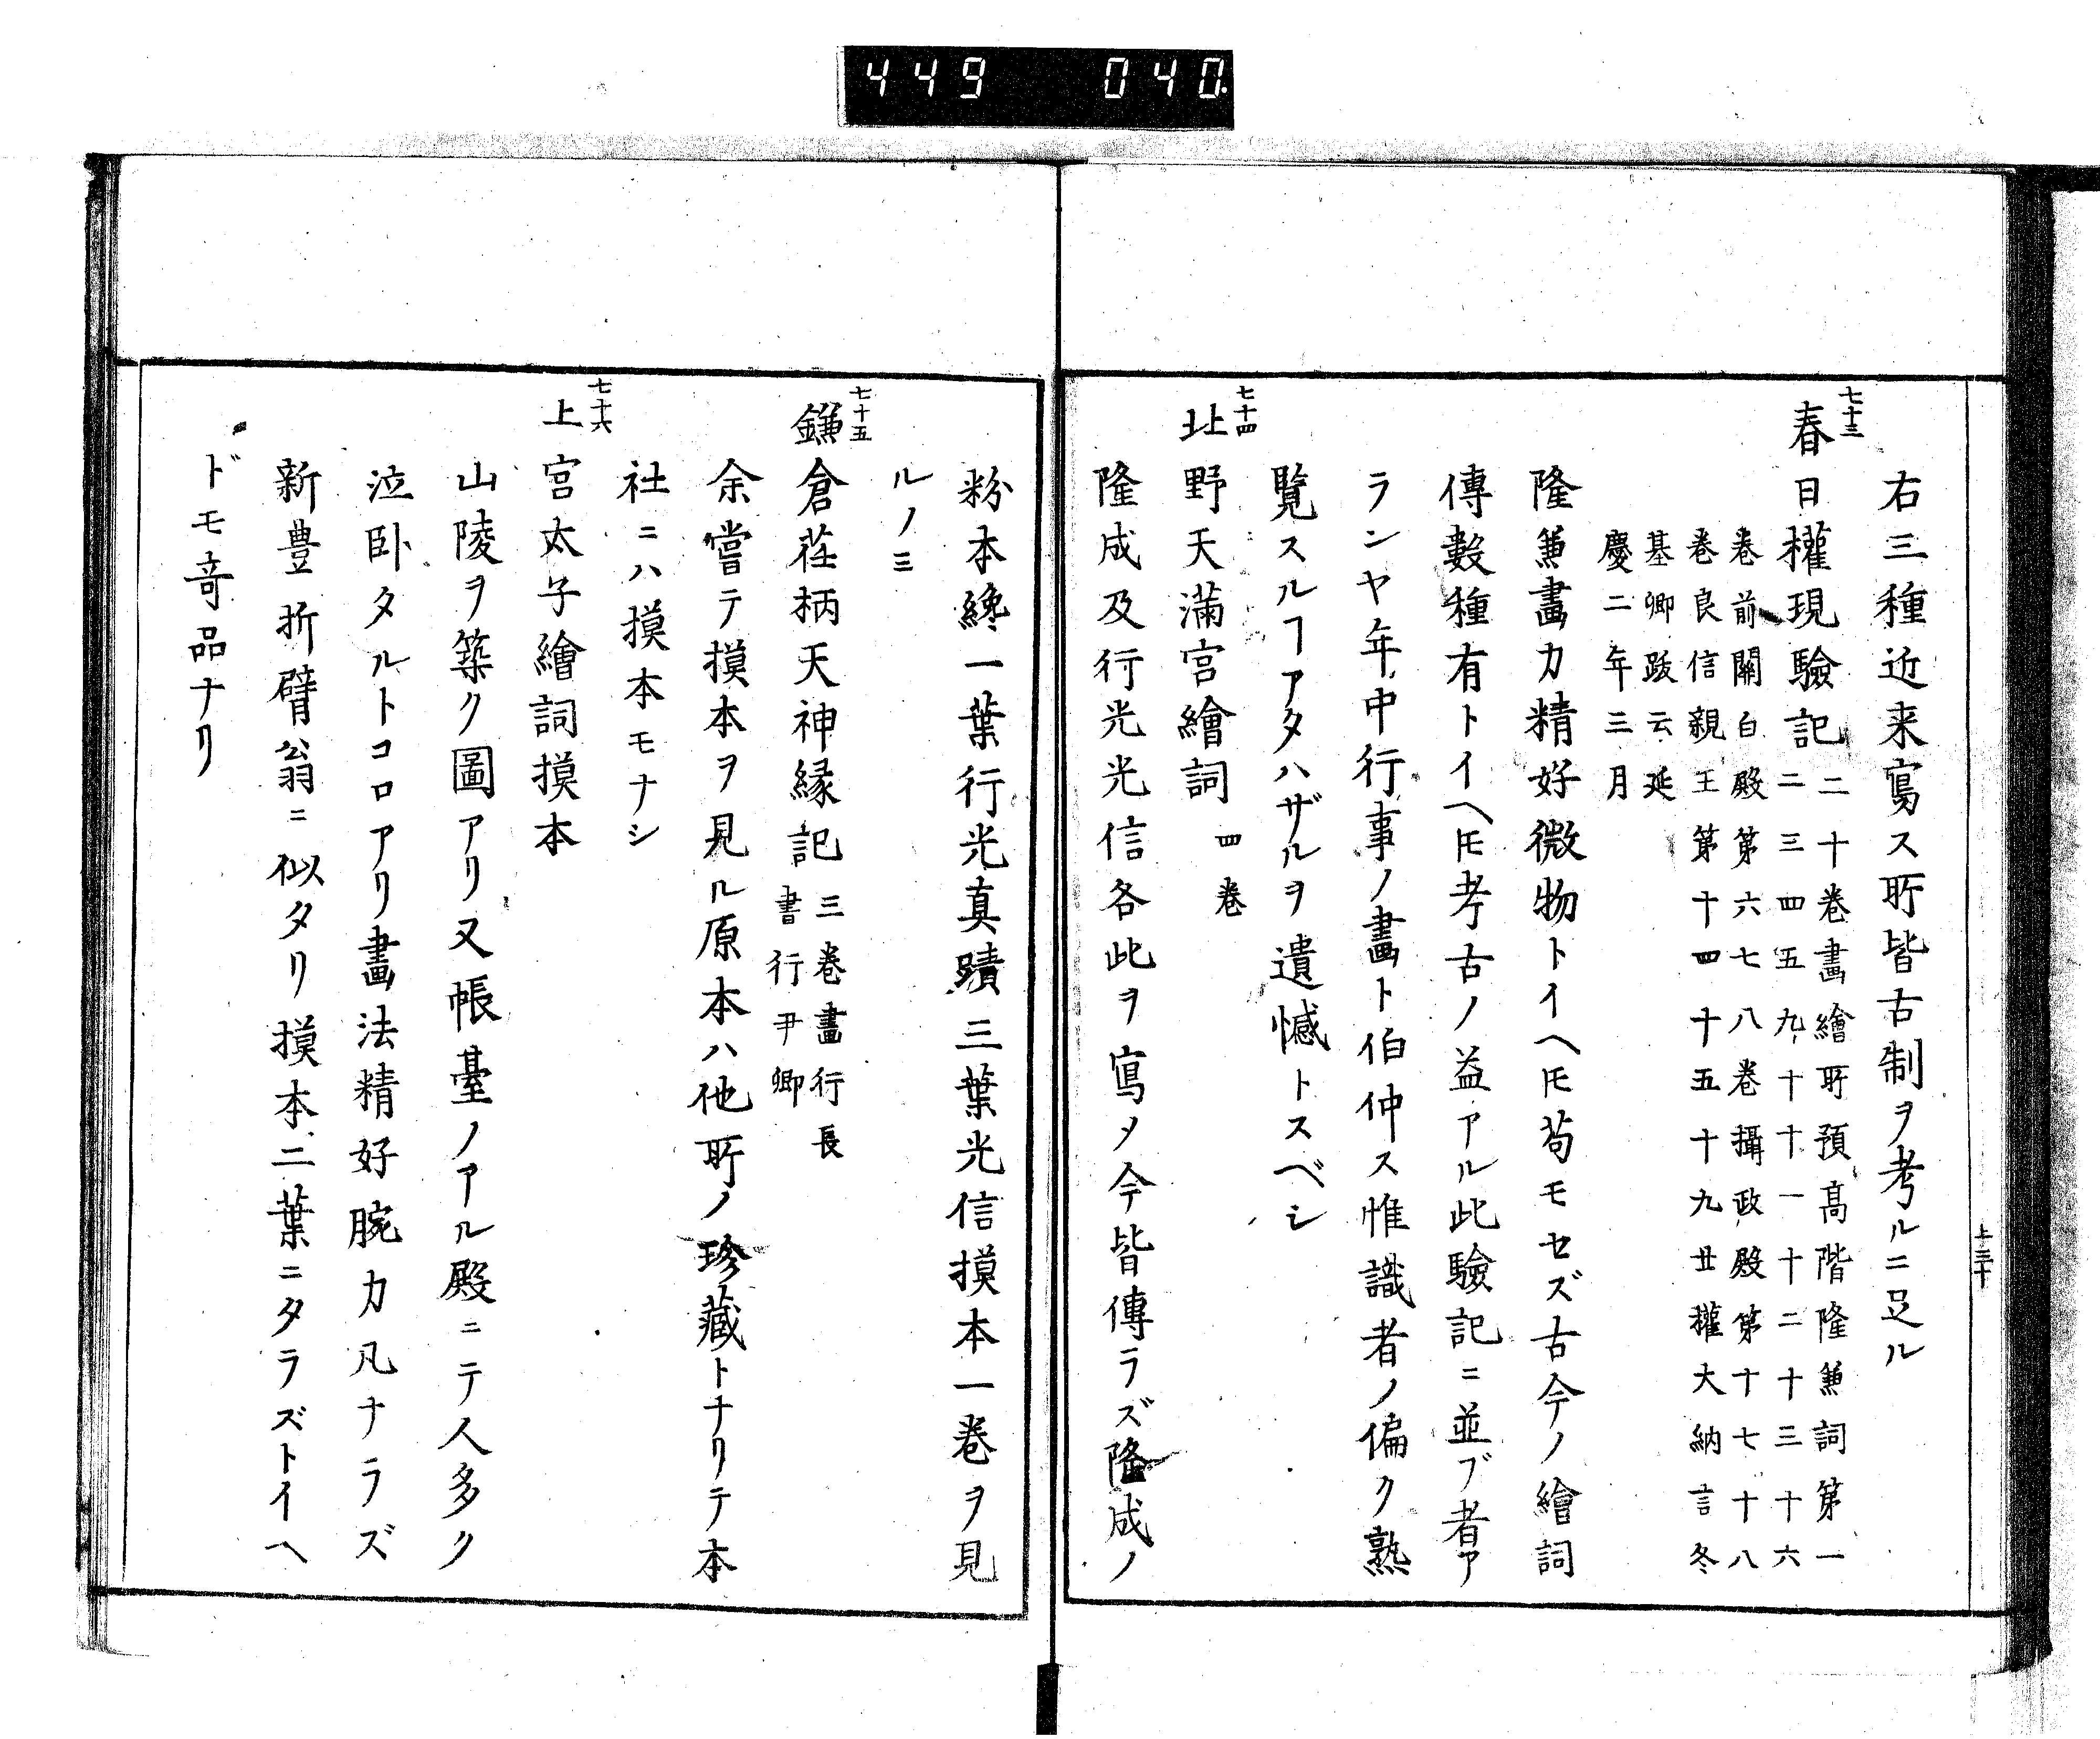 449 040.
右三種近来寫ス所皆古制ヲ考ルニ足ル
七十三
春日權現驗記二十卷畫繪所預高階隆兼詞第一
二三四五九十十一十二十三十六
卷前關白殿第六七八卷攝政殿第十七十八
卷良信親王第十四十五十九廿權大納言冬
基卿跋云延
慶二年三月
隆兼畫力精好微物トイヘ𪜈苟モセズ古今ノ繪詞
傳數種有トイヘ𪜈考古ノ益アル此驗記ニ並ブ者ア
ランヤ年中行事ノ畫ト伯仲ス惟識者ノ偏ク熟
覽スルヿアタハザルヲ遺憾トスベシ
七十四
北野天滿宮繪詞四卷
隆成及行光光信各此ヲ寫メ今皆傳ラズ隆成ノ
上三十
粉本纔一葉行光真蹟三葉光信摸本一卷ヲ見
ルノミ
七十五
鎌倉荏柄天神縁記三卷畫行長
書行尹卿
余嘗テ摸本ヲ見ル原本ハ他所ノ珍藏トナリテ本
社ニハ摸本モナシ
七十六
上宮太子繪詞摸本
山陵ヲ築ク圖アリ又帳臺ノアル殿ニテ人多ク
泣卧タルトコロアリ畫法精好腕力凡ナラズ
新豊折臂翁ニ似タリ摸本二葉ニタラズトイヘ
ドモ奇品ナリ